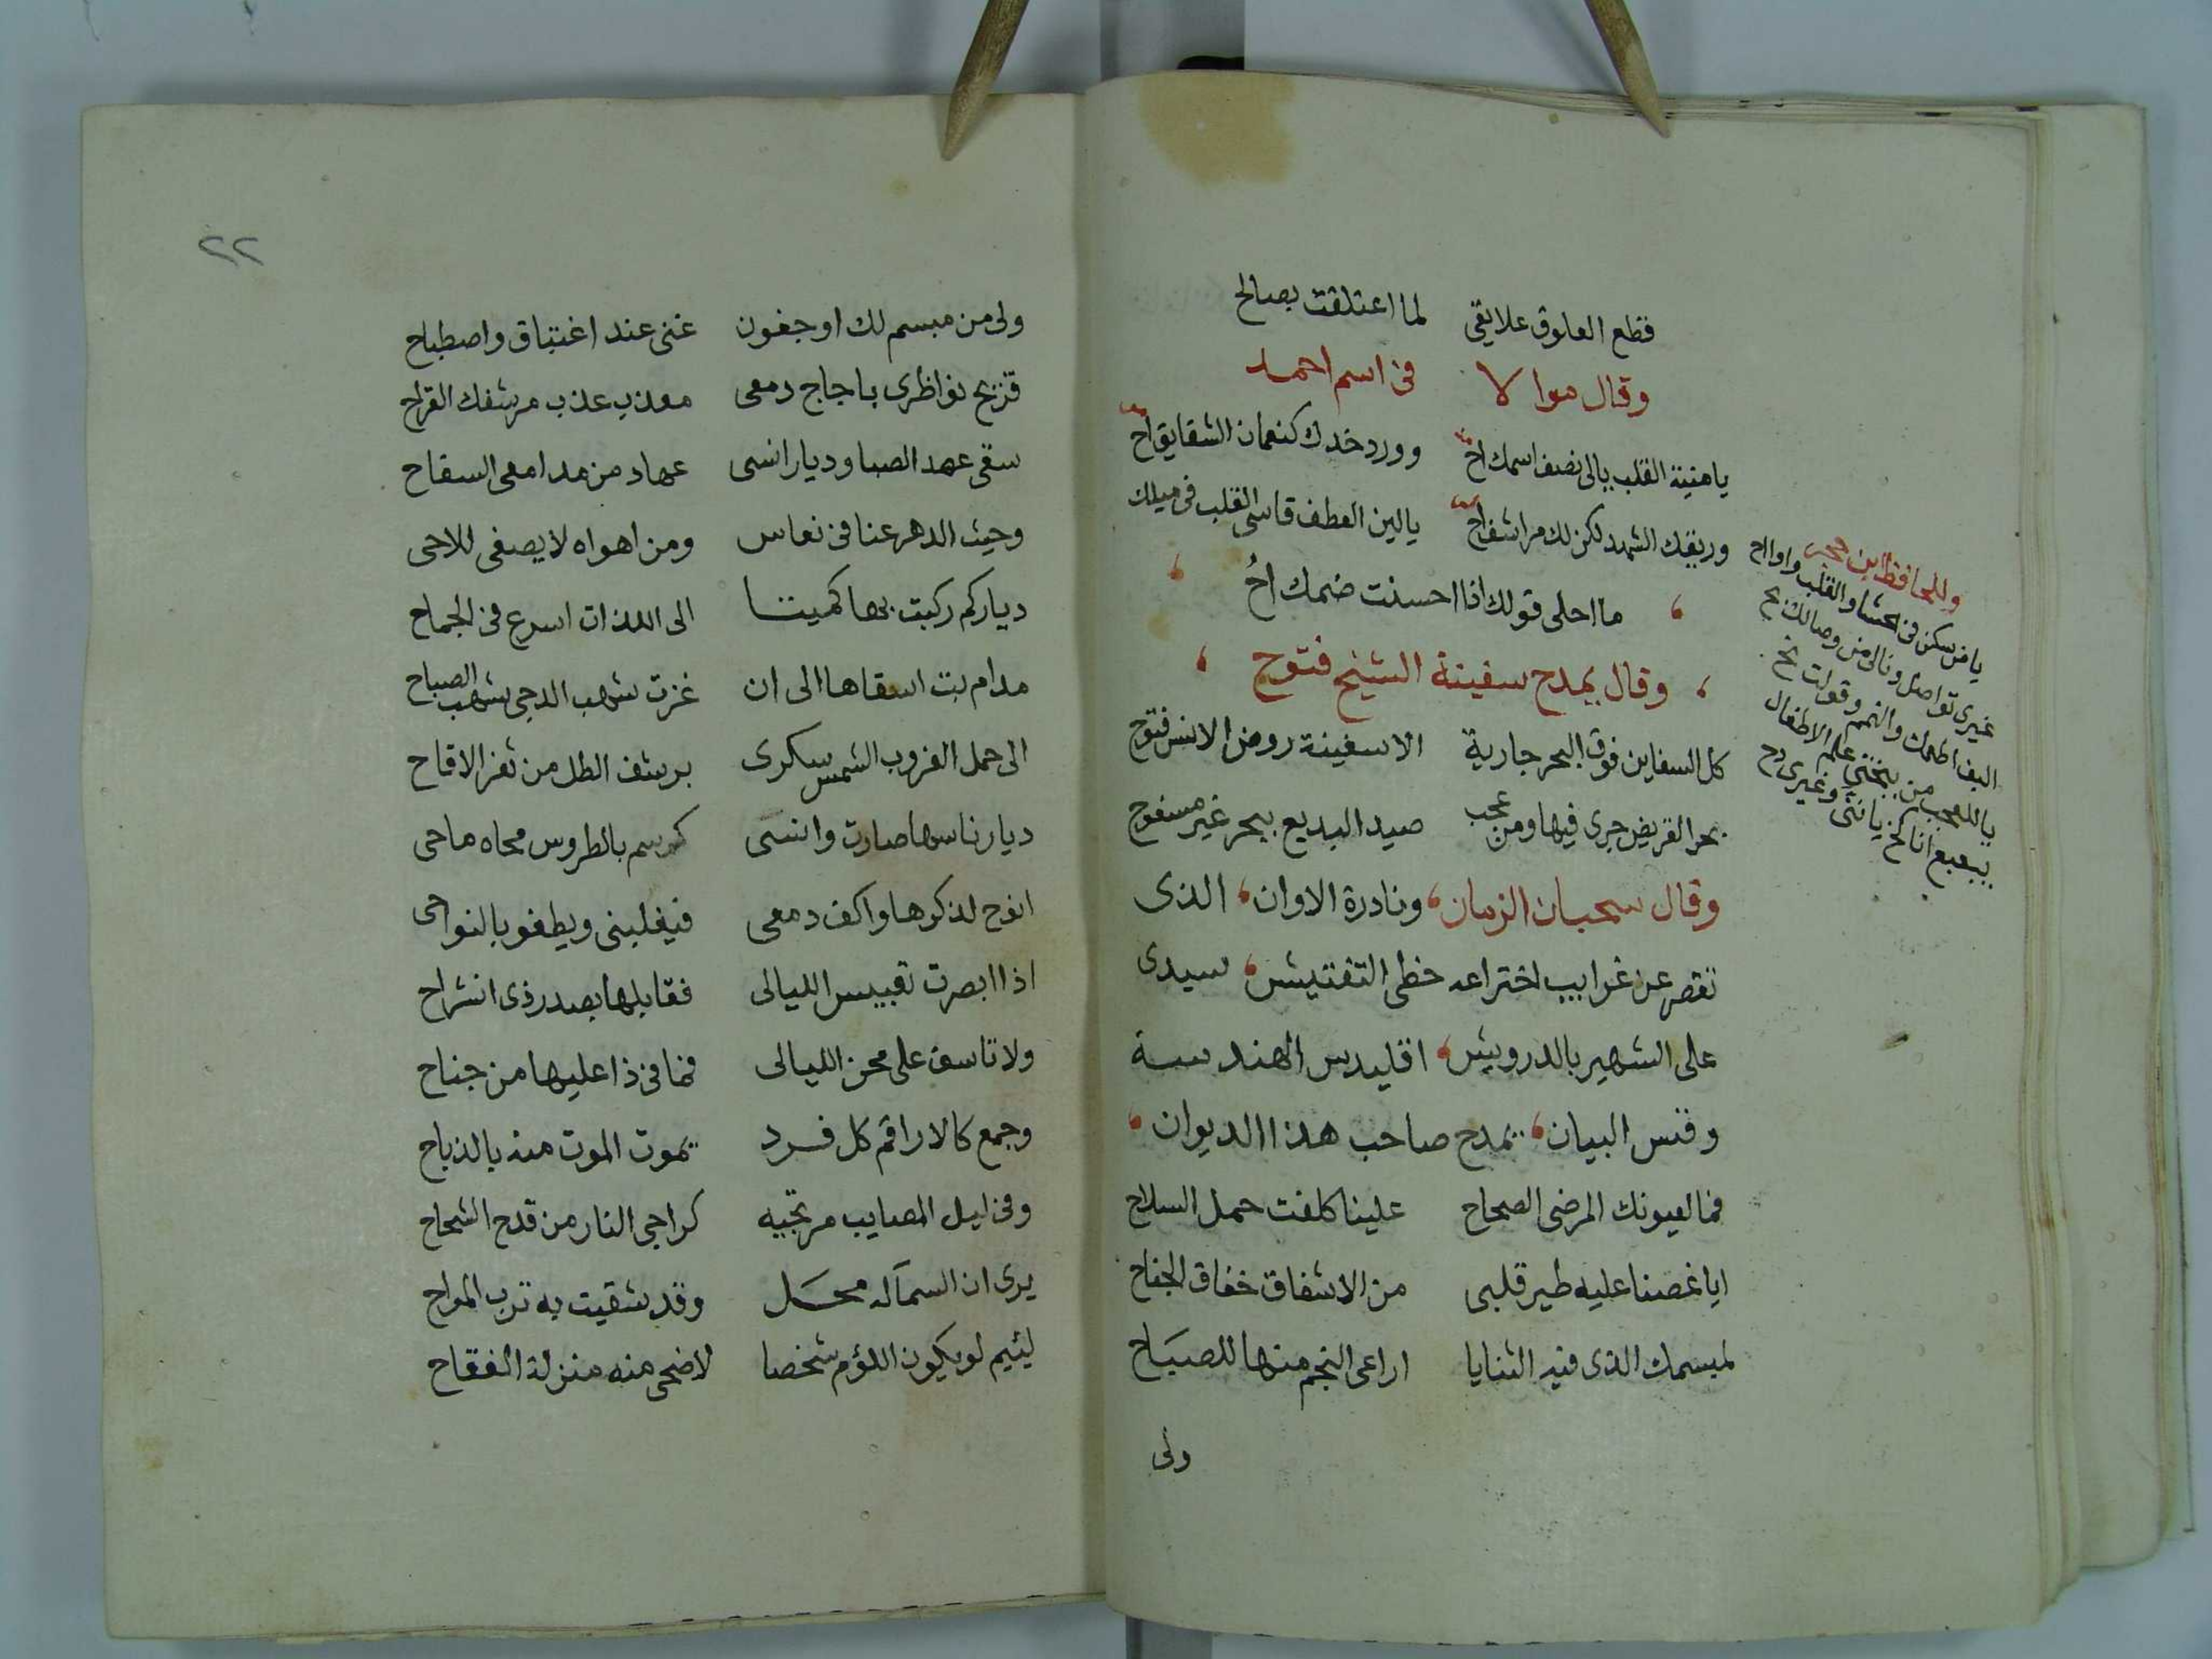 قطع العلوق علايقي لما اعتلقت بصالح
وقال موالا في اسم احمد
يا منية القلب يالى نصف اسمك اح وورد خدك كنعمان الشقايق اح
وريقك الشهد لكن لك مراشف اح يا لين العطف قاسى القلب فى ميلك
ما احلى قولك اذا احسنت ضمك اح
وقال يمدح سفينة الشيخ فتوح
كل السفاين فوق البحر جارية الا سفينة روض الانس فتوح
بحر القريض جرى فيها ومن عجب صيد البديع ببحر غير مسفوح
وقال سحبان الزمان ونادرة الاوان الذى
تقصر عن غرايب اختراعه خطى التفتيش سيدى
على الشهير بالدرويش اقليدس الهندسة
وقس البيان يمدح صاحب هذا الديوان
فما لعيونك المرضى الصحاح علينا كلفت حمل السلاح
ايا غصنا عليه طير قلبى من الاشفاق خفاق الجناح
لمبسمك الذى فيه الثنايا اراعى النجم منها للصباح
ولى
وللحافظ ابن حجر
يا من سكن فى الحشا والقلب واوا اح
غيرى تواصل ونالى من وصالك بح
يا للعجب من علم الاطفال
٢٢
ولى من مبسم لك او جفون غنى عند اغتباق واصطباح
قريح نواظرى باجاج دمعى معذب عذب مرشفك القراح
سقى عهد الصبا وديار انسى عهاد من مدامعى السفاح
وحيث الدهر عنا فى نعاس ومن اهواه لا يصغى للاحى
دياركم ركبت بها كميتا الى اللذات اسرع فى الجماح
مدام بت اسقاها الى ان غزت شهب الدجى شهب الصباح
الى حمل الغروب الشمس سكرى برشف الطل من ثغر الاقاح
ديار ناسها صارت وانسى كرسم بالطروس محاه ماحى
انوح لذكرها واكف دمعى فيغلبنى ويطفو بالنواحى
اذا ابصرت تعبيس الليالى فقابلها بصدر ذى انشراح
ولا تاسف على محن الليالى فما فى ذا عليها من جناح
وجمع كالاراقم كل فرد يموت الموت منه بالذباح
وفى ليل المصايب مرتجيه كراجى النار من قدح الشحاح
يرى ان السما له محل وقد شقيت به ترب المراح
لئيم لو يكون اللؤم شخصا لاضحى منه منزلة الفقاح